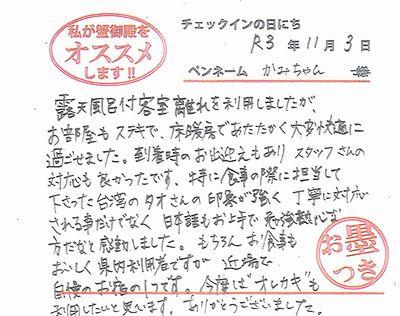 私が蟹御殿を
オススメ
します!!
チェックインの日にち
R3年11月3日
ペンネーム かみちゃん 様
露天風呂付客室離れを利用しましたが、
お部屋もステキで、床暖房であたたかく大変快適に
過ごせました。到着時のお出迎えもありスタッフさんの
対応も良かったです。特に食事の際に担当して
下さった台湾のタオさんの印象が強く丁寧に対応
される事だけでなく日本語もお上手で勉強熱心な
方だなと感動しました。もちろんお食事も
おいしく県内利用者ですが近場で
自慢のお宿の1つです。今度は"オレカギ"も
利用したいと思います。ありがとうございました。
お墨
つき